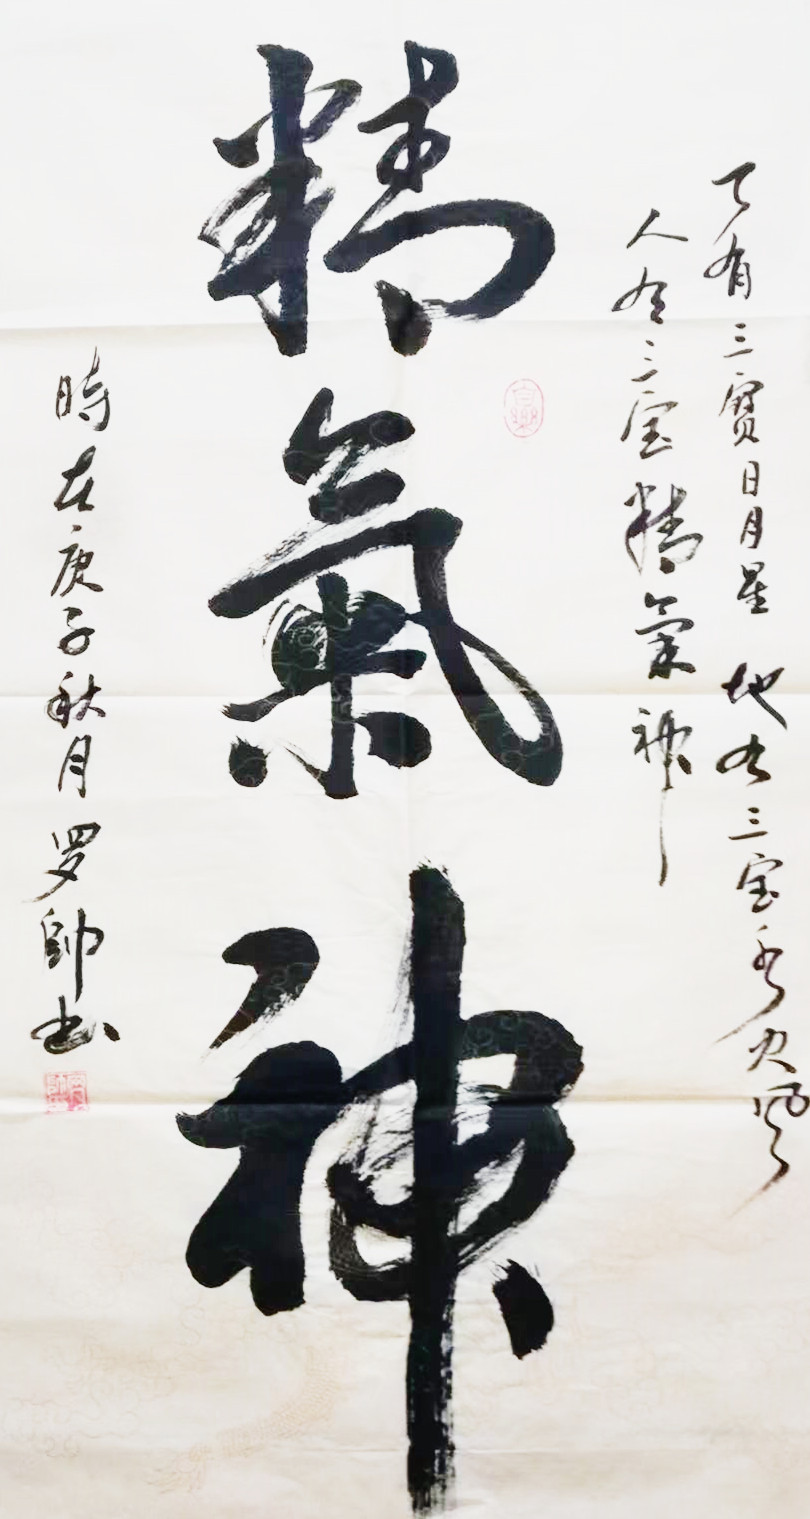 天有三寳日月星 地有三宝水火风
人有三宝精氣神
精氣神
時在庚子秋月罗帥书